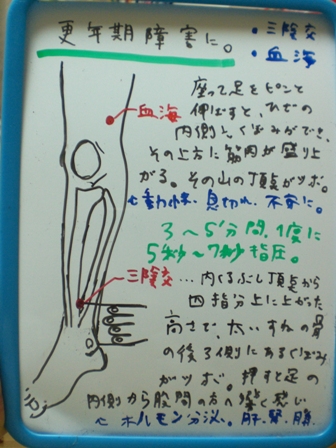 更年期障害に。
・三陰交
・血海
血海
座って足をピンと
伸ばすと、ひざの
内側に、くぼみができ、
その上方に筋肉が盛り上
がる。その山の頂点がツボ。
動悸、息切れ、不安に。
3〜5分間、1度に
5秒〜7秒指圧。
三陰交…内くるぶし頂点から
四指分上に上がった
高さで、太いすねの骨
の後ろ側にあるくぼみ
がツボ。押すと足の
内側から股間の方へ
ホルモン分泌。肝、腎、脾。